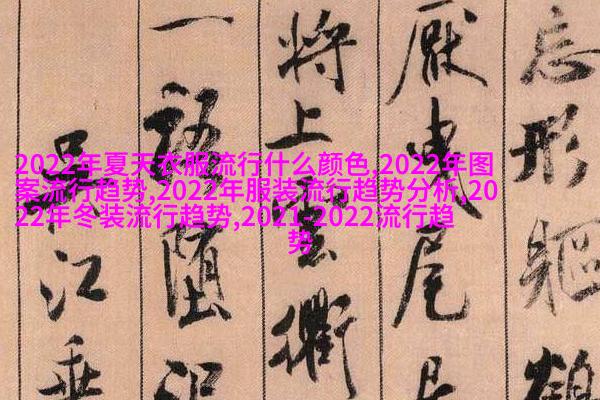 忘形軀鶴
厭曳尾居
將上雲衢
一語墮泥
吳江垂
2022年夏天衣服流行什么颜色,2022年图
案流行趋势,2022年服装流行趋势分析,20
22年冬装流行趋势,2021-2022流行趋
势